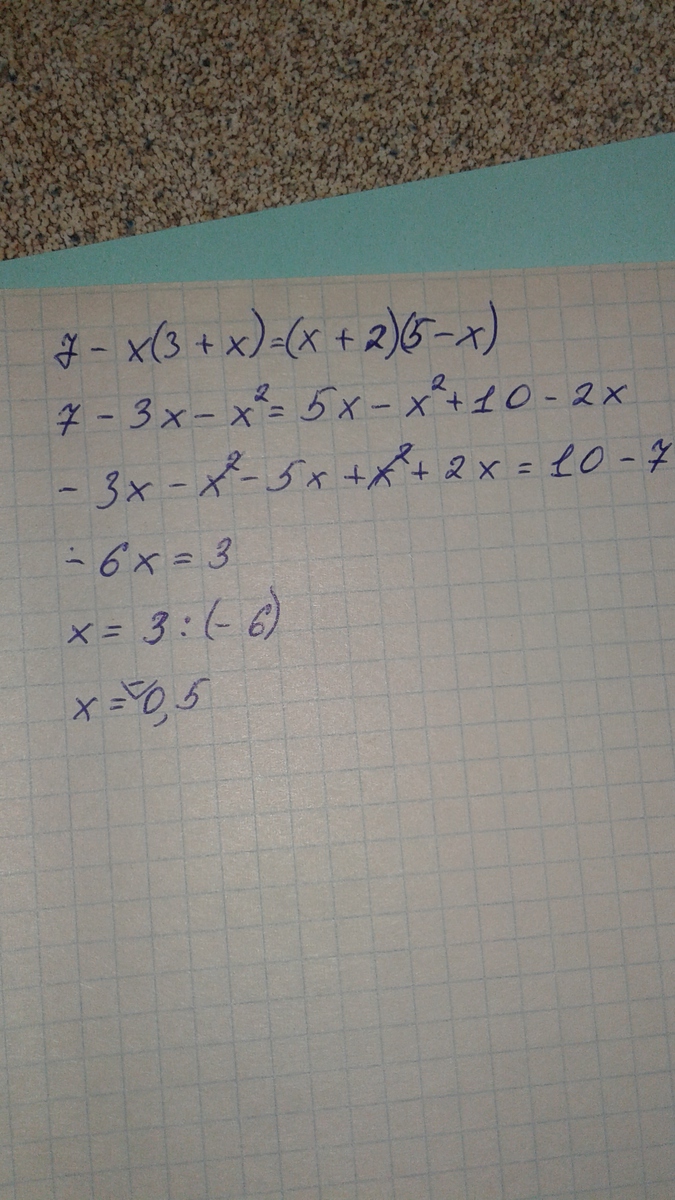 7 - x(3 + x) = (x + 2)(5 - x)
7 - 3x - x² = 5x - x² + 10 - 2x
- 3x - x² - 5x + x² + 2x = 10 - 7
- 6x = 3
x = 3 : (- 6)
x = -0,5